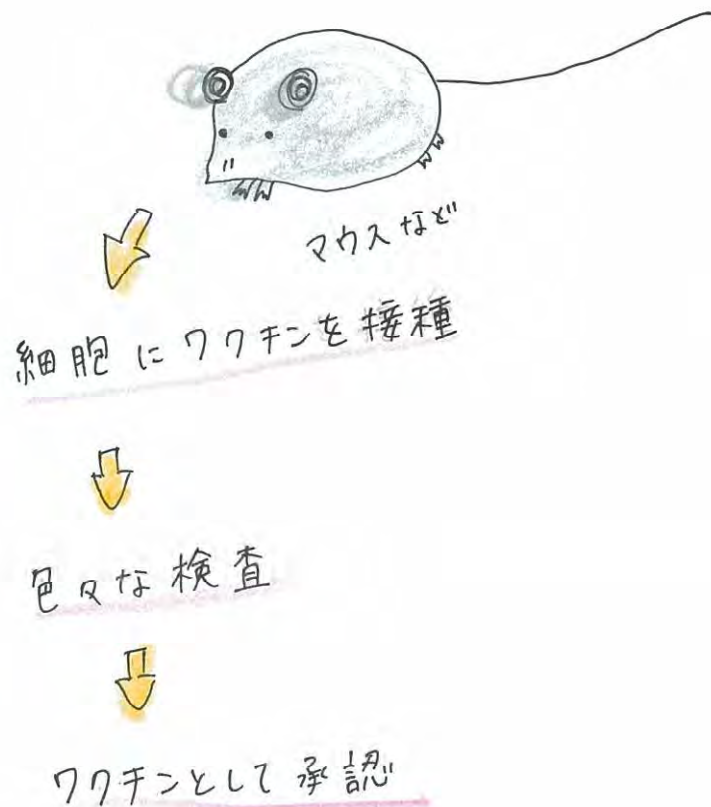 マウスなど
細胞にワクチンを接種
色々な検査
ワクチンとして承認